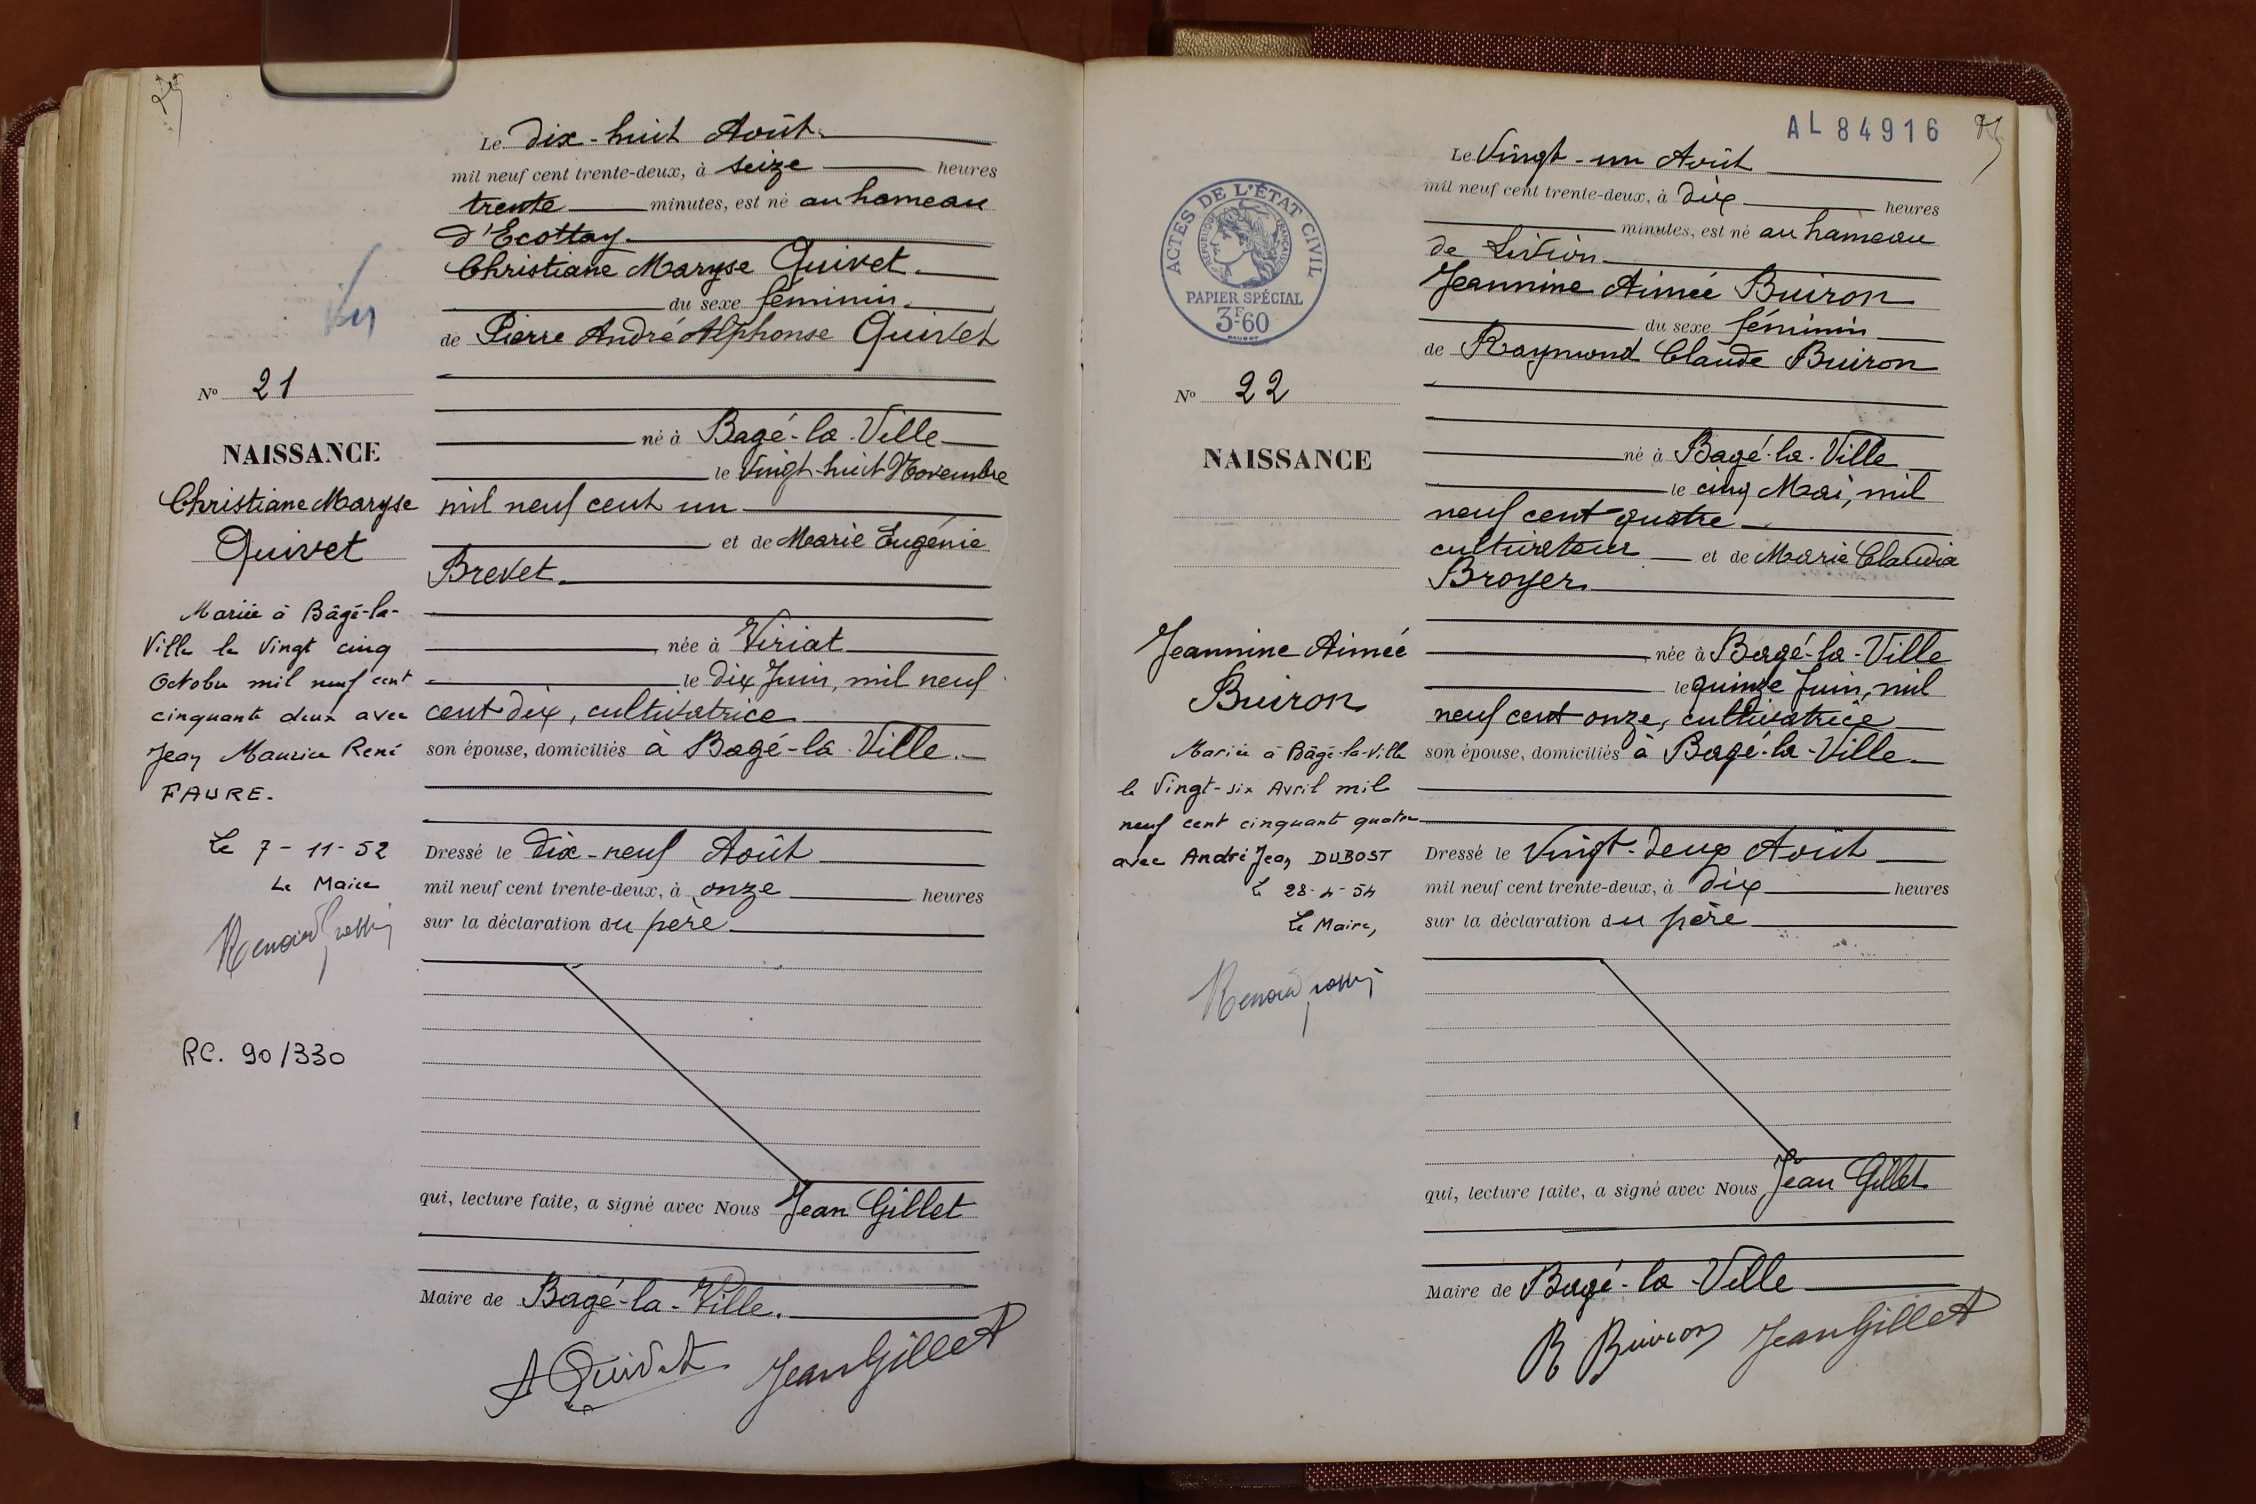 Le dix-huit Août
mil neuf cent trente-deux, à seize heures
trente minutes, est né au hameau
d'Ecottay
Christiane Maryse Quivet
du sexe féminin
de Pierre André Alphonse Quivet
né à Bagé-la-Ville
le Vingt-huit Novembre
mil neuf cent un
et de Marie Eugénie
Brevet
née à Viriat
le dix Juin, mil neuf
cent dix, cultivatrice
son épouse, domiciliés à Bagé-la-Ville.
Dressé le dix-neuf Août
mil neuf cent trente-deux, à onze heures
sur la déclaration du père
qui, lecture faite, a signé avec Nous Jean Gillet
Maire de Bagé-la-Ville.
A Quivet Jean Gillet
No 21
NAISSANCE
Christiane Maryse
Quivet
Mariée à Bâgé-la-
Ville le Vingt cinq
Octobre mil neuf cent
cinquante deux avec
Jean Maurice René
FAURE.
Le 7-11-52
Le Maire
RC. 90/330
AL 84916
Le Vingt-un Août
mil neuf cent trente-deux, à dix heures
minutes, est né au hameau
de
Jeannine Aimée Buiron
du sexe féminin
de Raymond Claude Buiron
né à Bagé-la-Ville
le cinq Mai, mil
neuf cent quatre
cultivateur et de Marie Claudia
Broyer
née à Bagé-la-Ville
le quinze Juin, mil
neuf cent onze, cultivatrice
son épouse, domiciliés à Bagé-la-Ville.
Dressé le Vingt-deux Août
mil neuf cent trente-deux, à dix heures
sur la déclaration du père
qui, lecture faite, a signé avec Nous Jean Gillet
Maire de Bagé-la-Ville
R Buiron Jean Gillet
ACTES DE L'ÉTAT CIVIL
RÉPUBLIQUE FRANÇAISE
PAPIER SPÉCIAL
3F60
No 22
NAISSANCE
Jeannine Aimée
Buiron
Mariée à Bâgé-la-Ville
le Vingt-six Avril mil
neuf cent cinquante quatre
avec André Jean DUBOST
Le 28-4-54
Le Maire,